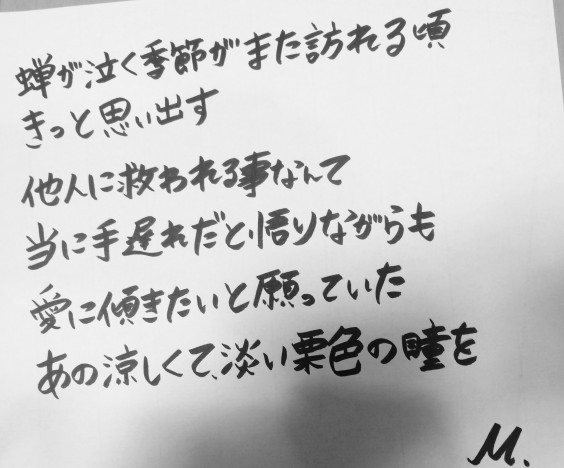 蝉が泣く季節がまた訪れる頃
きっと思い出す
他人に救われる事なんて
当に手遅れだと悟りながらも
愛に傾きたいと願っていた
あの涼しくて、淡い栗色の瞳を
M.